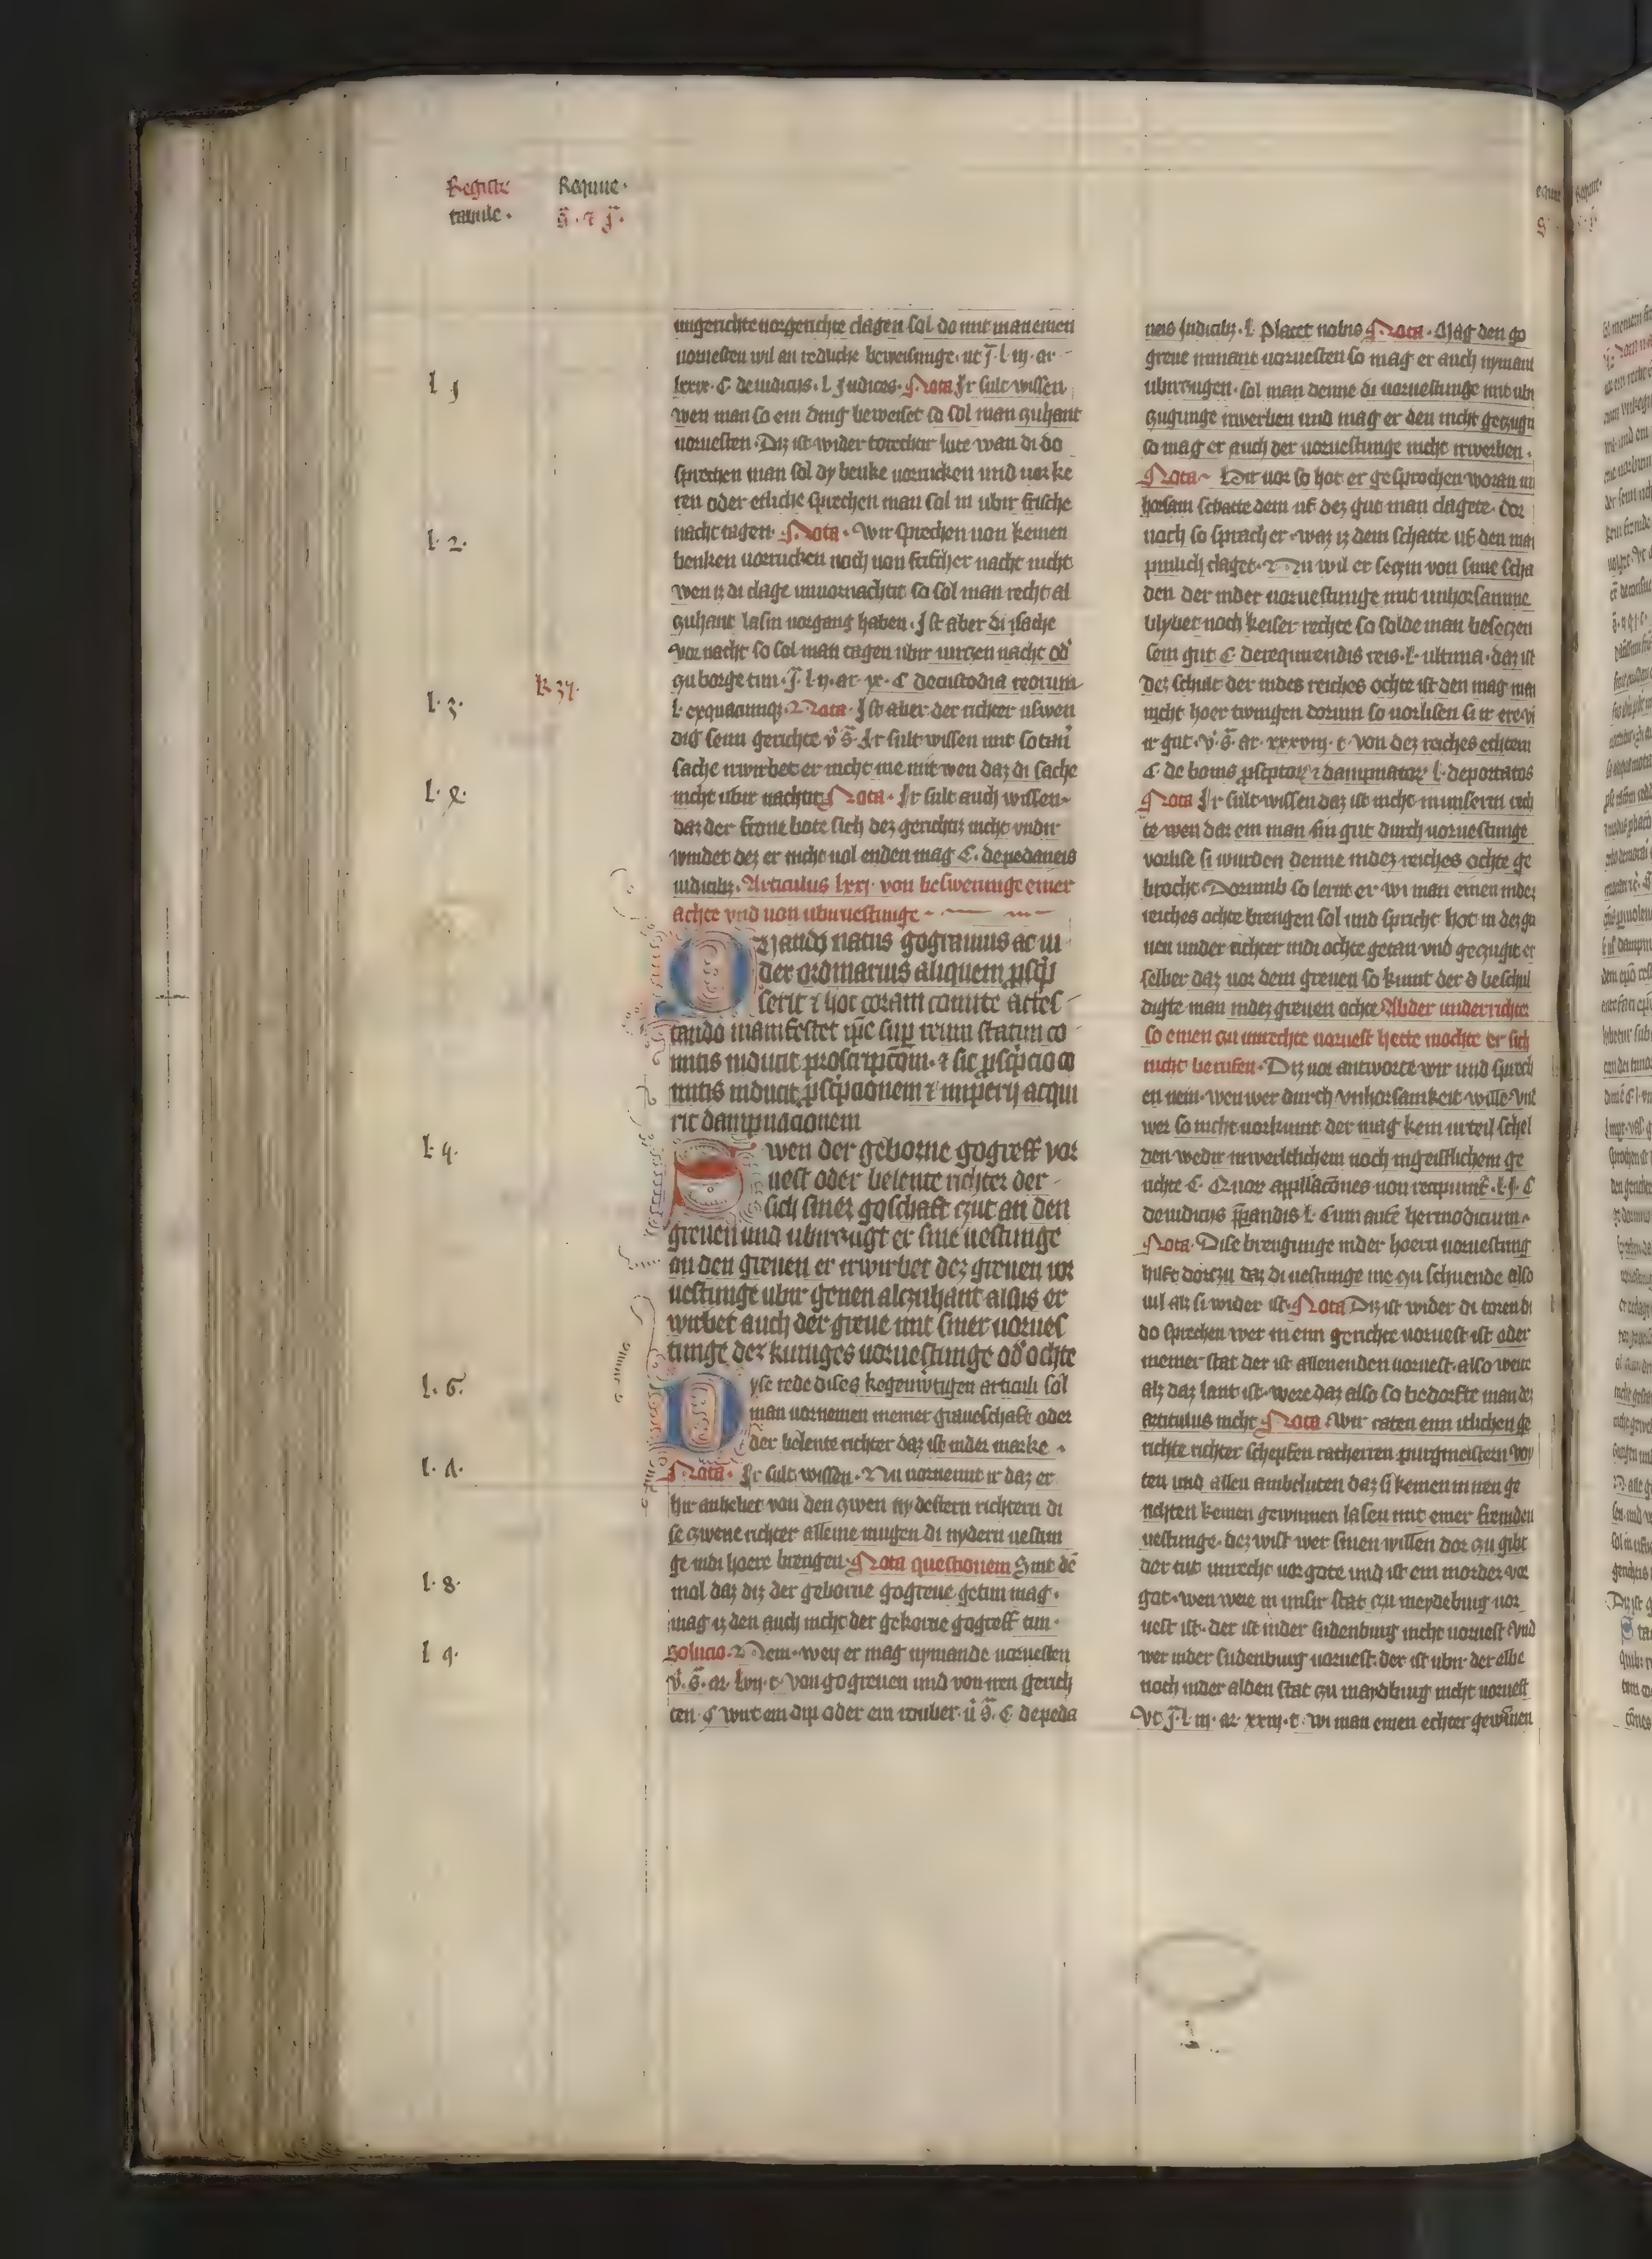 Registre
tabule.
Require.
s̄. ⁊ j̄.
l. 1
l. 2.
l. 3.
R 37.
l. 4.
l. 5.
l. 6.
l. 7.
l. 8.
l. 9.
ungerichte vorgerichte clagen sol do mit man einen
voruesten wil an redliche beweisunge. ut j̄. l. iij. ar
lxxix. C. de iudiciis. l. Judices. Nota Ir sult wissen
wen man so ein ding beweiset so sol man zuhant
voruesten. Diz ist wider torechir lute wan di do
sprechen man sol dy benke vorrucken und vorke
ren oder etliche sprechen man sol in ubir frische
nacht tagen. Nota. Wir sprechen von keinen
benken vorrucken noch von frischer nacht nicht
wen iz di clage unuornachtit so sol man recht al
zuhant lasin vorgang haben. Ist aber di sache
vor nacht so sol man tagen ubir virczen nacht od'
zu borge tun. j̄. l. ij. ar. ix. C. de custodia reorum
l. exquacunq;. Nota. Ist aber der richter uswen
dig seim gerichte v̊. s̄. Ir sult wissen mit sotan̄
sache irwirbet er nicht me mit wen daz di sache
nicht ubir nachtit. Nota. Ir sult auch wissen
daz der frone bote sich dez gerichtiz nicht undir
windet dez er nicht uol enden mag C. de pedaneis
iudicib;. Articulus lxxj. von besweringe einer
achte vnd von ubiruestunge
Quando natus gograuius ac iu
der ordinarius aliquem p̱sc̱pi
serit ⁊ hoc coram comite attes
tando manifestet ip̄e sup reum statim co
mitis inducit proscripc̄om. ⁊ sic p̱sc̱pcio co
mitis inducit p̱sc̱pcionem ⁊ imperij acqui
rit dampnacionem
Swen der geborne gogreff vor
uest oder belente richter der
sich siner goschaft czut an den
greuen und ubirczugt er sine uestunge
an den greuen er irwirbet dez greuen vor
uestunge ubir genen alczuhant alsus er
wirbet auch der greue mit siner uorues
tunge dez kuniges voruestunge od' ochte
Dyse rede dises kegenw̄tigen articuli sol
man vornemen in einer graueschaft oder
der belente richter daz ist in der marke.
Nota. Ir sult wissen. Nu vornemt ir daz er
hir anhebet von den zwen nydestern richtern di
se czwene richter alleine mugen di nydern uestun
ge in di hoere brengen. Nota questionem Sint de
mol daz diz der geborne gogreue getun mag.
mag iz den auch nicht der gekorne gogreff tun.
Solucio. Nein. wen er mag nymande voruesten
v̊. s̄. ar. lvij. t. Von gogreuen und von iren gerich
ten. C wirt ein dip oder ein rouber. v̊ s̄. C. de peda
neis Iudicib;. l. Placet nobis Nota. Mag den go
greue nimant voruesten so mag er auch nymant
ubirczugen. sol man denne di voruestunge mit ubir
czugunge irwerben und mag er den nicht geczugen
so mag er auch der voruestunge nicht irwerben.
Nota. Hir vor so hot er gesprochen woran un
horsam schatte dem uf dez gut man clagete. dor
noch so sprach er. waz iz dem schatte uf den man
pinlich claget. Nu wil er seczin von sime scha
den der in der voruestunge mit unhorsamme
blybet noch keiser rechte so solde man beseczen
sein gut C. de requirendis reis. l. ultima. daz ist
dez schult der in des reiches ochte ist den mag man
nicht hoer twingen dorum so vorlisen si ir ere. vn̄
ir gut. v̊. s̄. ar. xxxviij. t. von dez reiches echtern
C. de bonis p̱sc̱ptor⁊ ⁊ dampnator⁊ l. deportatos
Nota Ir sult wissen daz ist nicht in unserm rech
te wen daz ein man sin gut durch voruestunge
vorlise si wurden denne in dez reiches ochte ge
brocht. Dorumb so lernt er wi man einen in dez
reiches ochte brengen sol und spricht hot in dez ga
uen under richter in di ochte getan vnd geczugit er
selber daz vor dem greuen so kumt der d̄ beschul
digte man in dez greuen ochte Ab der underrichter
so einen zu unrechte voruest hette mochte er sich
nicht berufen. Diz vor antworte wir und sprech
en nein. wen wer durch vnhorsamkeit wille. vnt
wer so nicht vorkumt der mag kein urteil schel
den wedir in werltlichem noch in geistlichem ge
richte C. Quor⁊ appellac̄ones non recipunt̄. l. j. C
de iudicijs p̱p̱andis l. Cum aut̄ hermodicium.
Nota. Dise brengunge in der hoern voruestung
hilft dorczu daz di uestunge me zu schuende also
vil alz si wider ist. Nota Diz ist wider di toren di
do sprechen wer in einn gerichte voruest ist oder
in einer stat der ist allenenden voruest. also weit
alz daz lant ist. were daz also so bedorfte man dez
articulus nicht Nota. Wir raten einn itlichen ge
richte richter schepfen ratherren purgmeistern voy
ten und allen ambtluten daz si keinen in iren ge
richten keinen gewinnen lasen mit einer fremden
uestunge. dez wist wer sinen willen dor zu gibt
der tut unrecht vor gote und ist ein morder vor
got. wen were in unsir stat czu meydeburg vor
uest ist. der ist in der sudenburg nicht voruest. Vnd
wer in der sudenburg voruest. der ist ubir der elbe
noch in der alden stat zu maydburg nicht voruest
Vt j̄. l. iij. ar. xxiij. t. wi man einen echter gewinnen